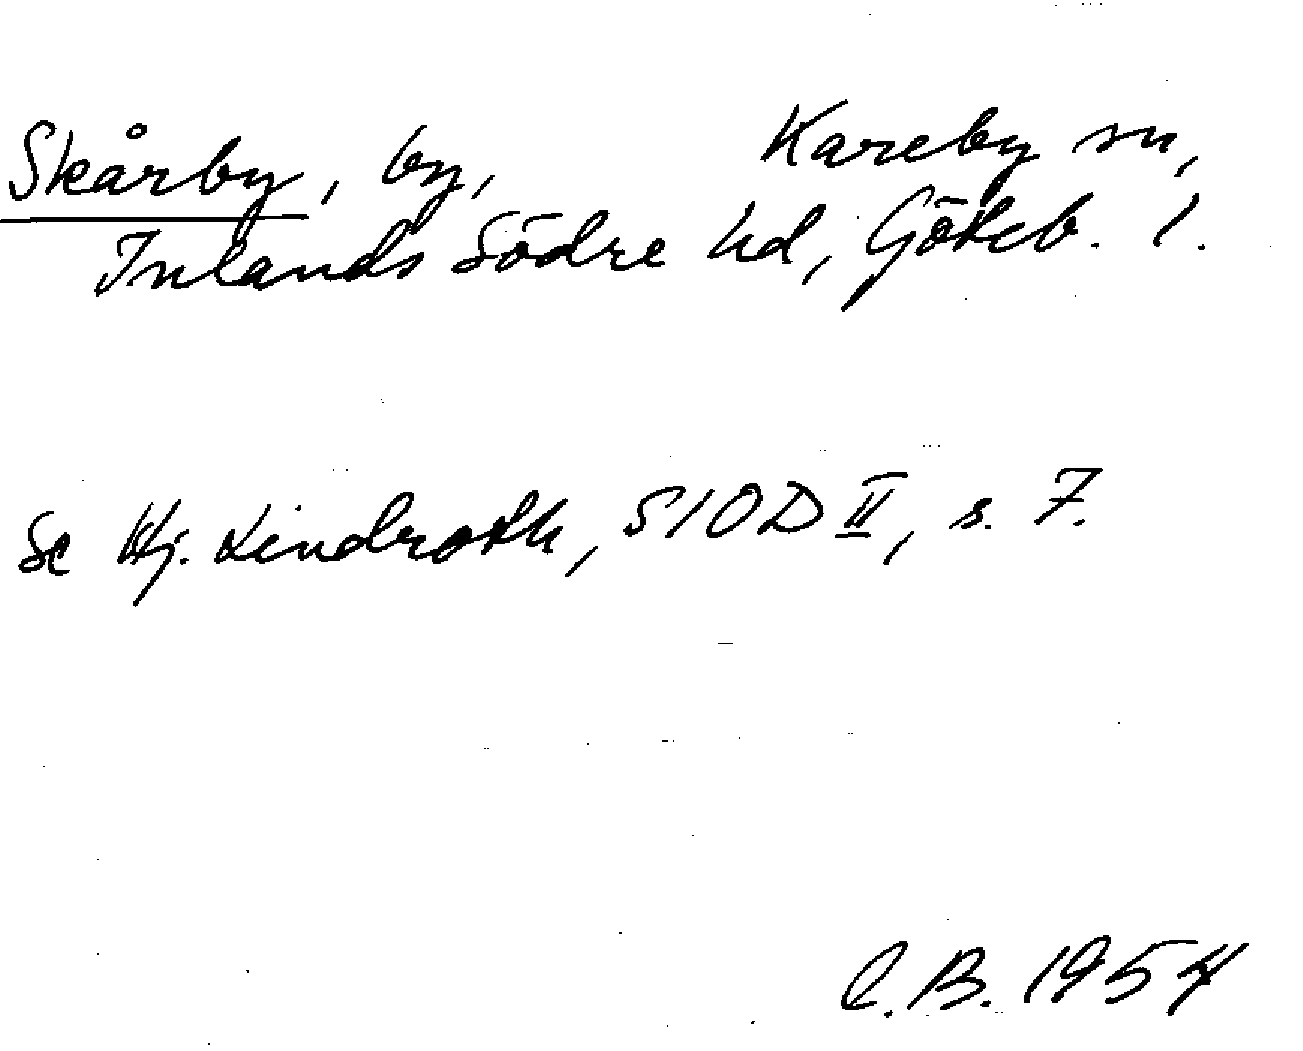 Skårby, by, Kareby sn,
Inlands Södre hd, Göteb. l.
Se Hj. Lindroth, SIOD II, s. 7.
C.B. 1954